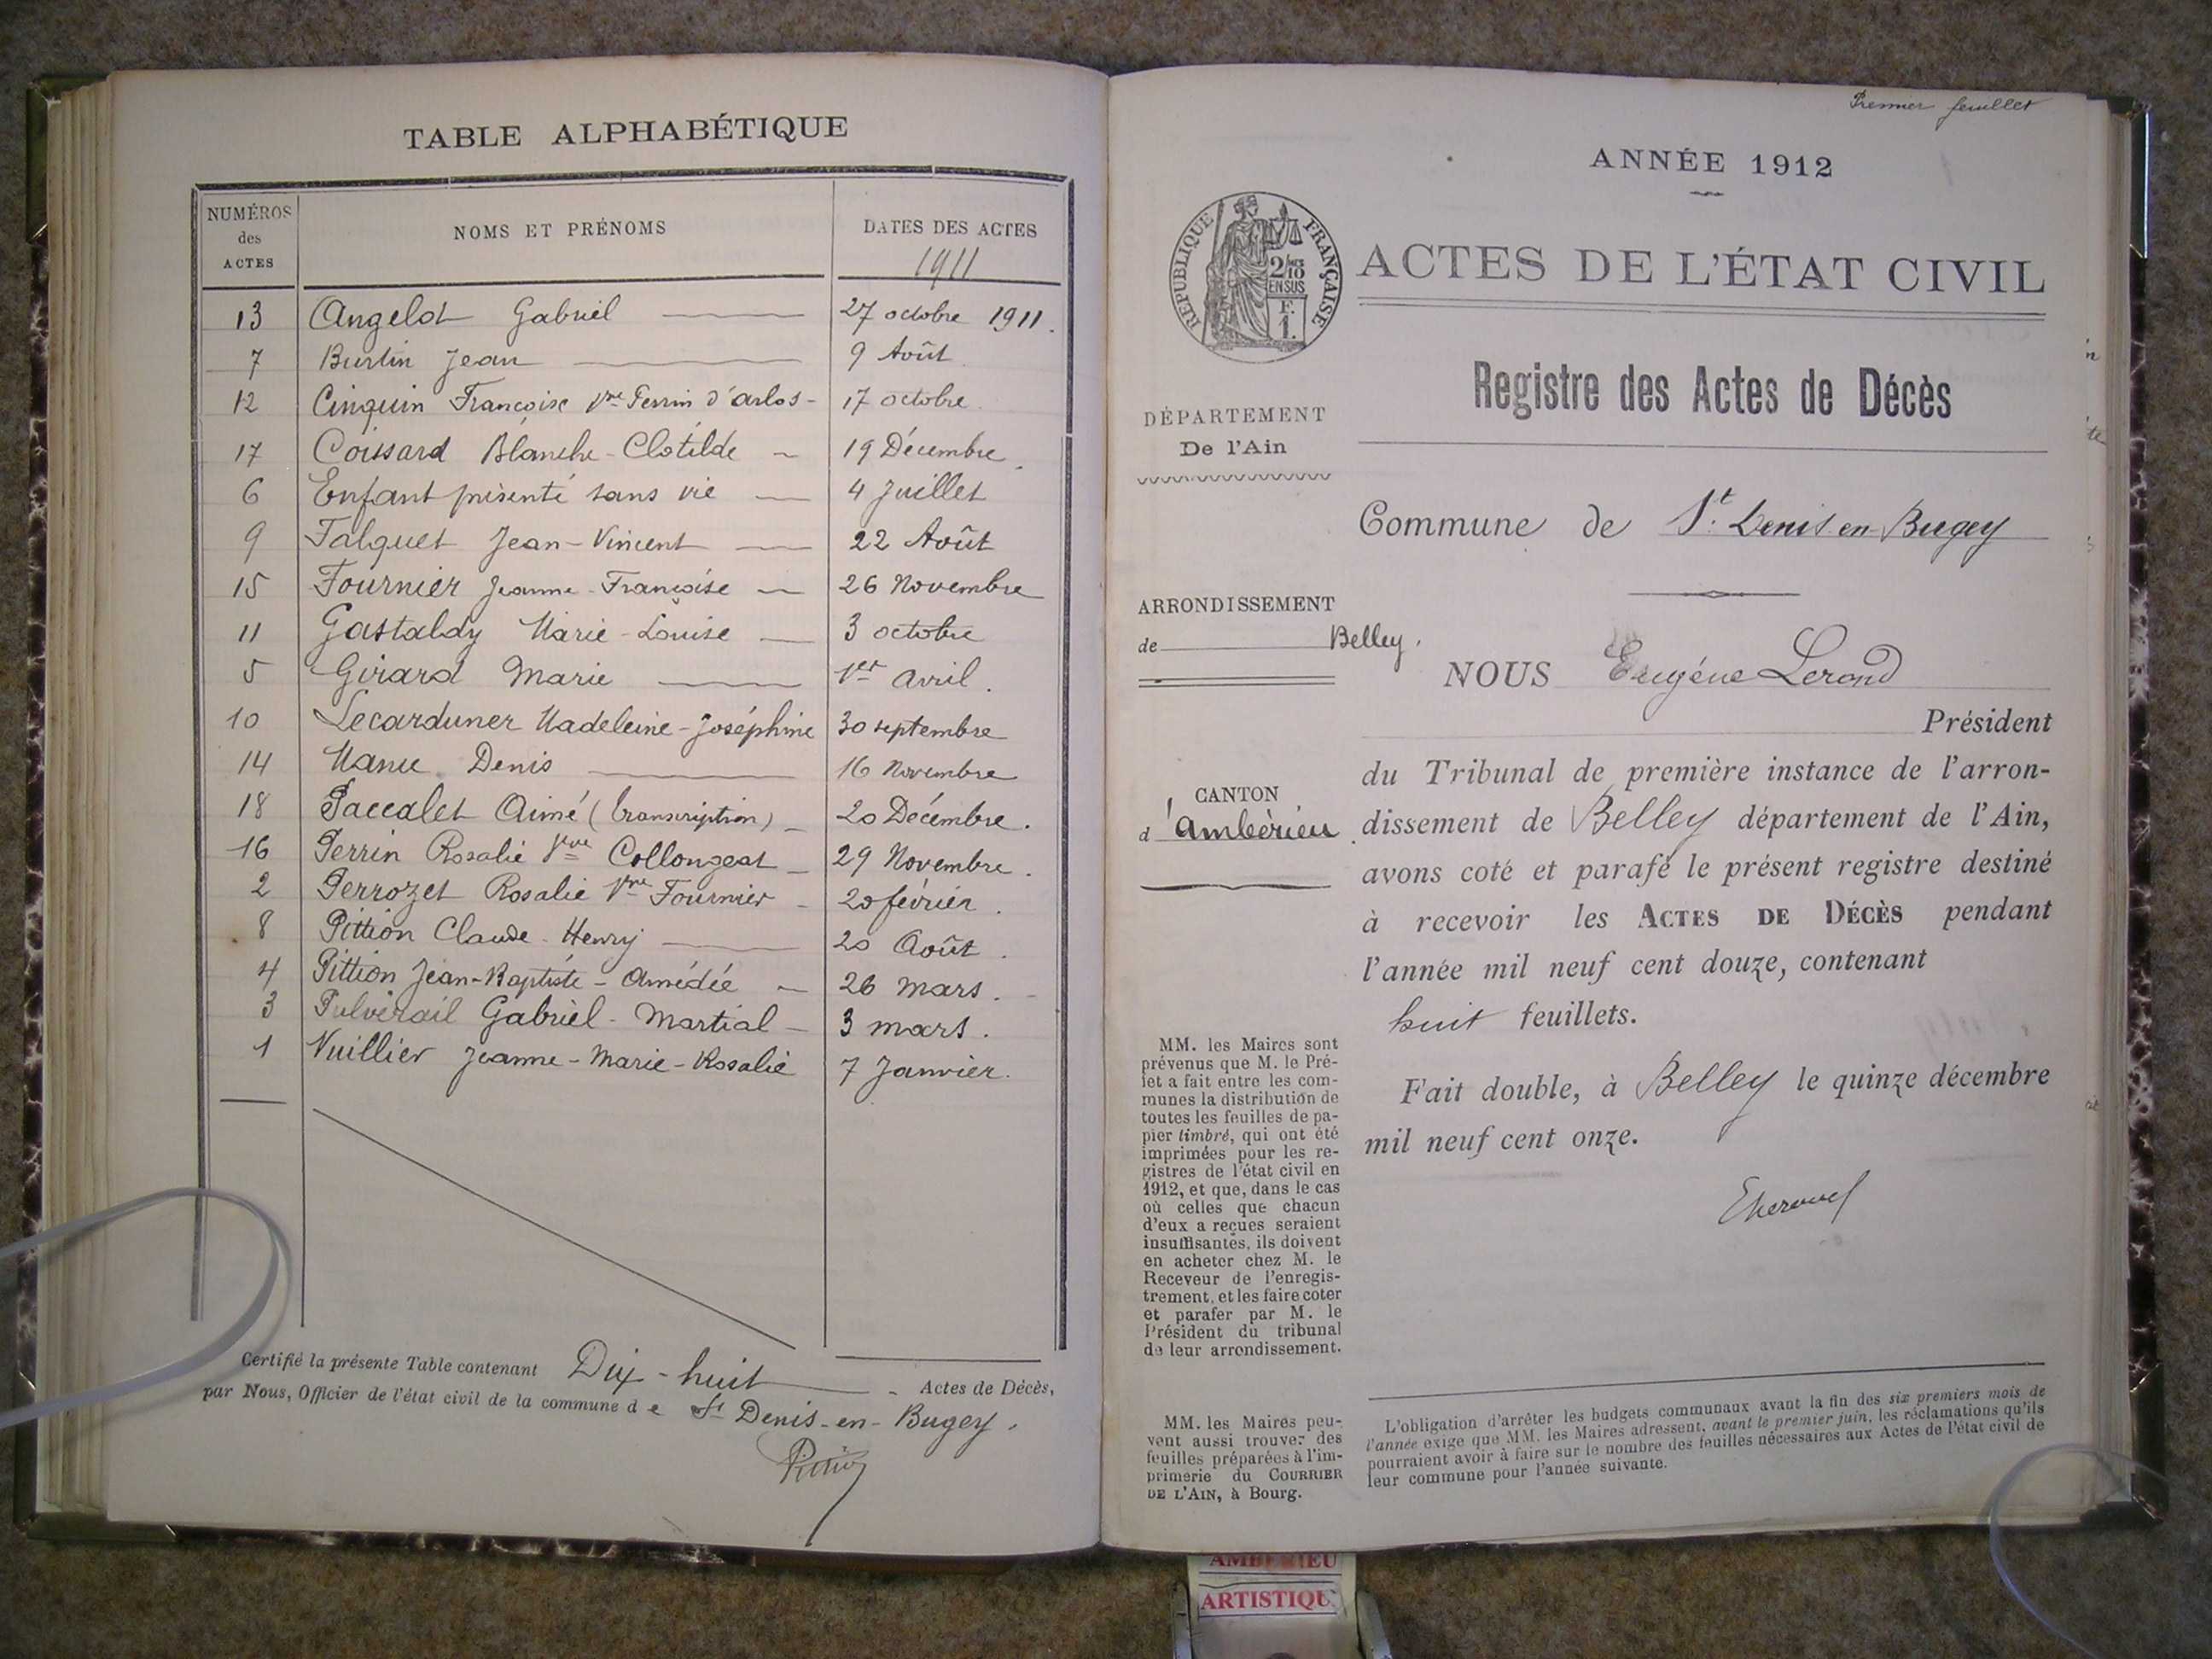 TABLE ALPHABÉTIQUE
NUMÉROS des ACTES
NOMS ET PRÉNOMS
DATES DES ACTES
1911
13 Angelot Gabriel 27 octobre 1911.
7 Burtin Jean 9 Août
12 Cinquin Françoise Vve Perrin d'arlos - 17 octobre
17 Coissard Blanche-Clotilde 19 Décembre.
6 Enfant présenté sans vie 4 Juillet
9 Falquet Jean-Vincent 22 Août
15 Fournier Jeanne-Françoise 26 Novembre
11 Gastaldy Marie-Louise 3 octobre
5 Girard Marie 1er avril.
10 Lecarduner Madeleine-Joséphine 30 septembre
14 Denis 16 Novembre
18 Paccalet Aimé (transcription) 20 Décembre.
16 Perrin Rosalie Vve Collongeat 29 Novembre.
2 Perrozet Rosalie Vve Fournier 20 février.
8 Pittion Claude-Henry 20 Août.
4 Pittion Jean-Baptiste-Amédée 26 mars.
3 Pulvérail Gabriel-Martial 3 mars.
1 Vuillier Jeanne-Marie-Rosalie 7 Janvier.
Certifié la présente Table contenant Dix-huit Actes de Décès,
par Nous, Officier de l'état civil de la commune de St Denis-en-Bugey.
Premier feuillet
ANNÉE 1912
RÉPUBLIQUE FRANÇAISE
2/10
EN SUS
F.
1.
ACTES DE L'ÉTAT CIVIL
Registre des Actes de Décès
DÉPARTEMENT
De l'Ain
Commune de St. Denis en Bugey
ARRONDISSEMENT
de Belley.
NOUS Eugène Lerond
Président
du Tribunal de première instance de l'arron-
dissement de Belley département de l'Ain,
avons coté et parafé le présent registre destiné
à recevoir les ACTES DE DÉCÈS pendant
l'année mil neuf cent douze, contenant
huit feuillets.
Fait double, à Belley le quinze décembre
mil neuf cent onze.
CANTON
d'Ambérieu.
MM. les Maires sont
prévenus que M. le Pré-
fet a fait entre les com-
munes la distribution de
toutes les feuilles de pa-
pier timbré, qui ont été
imprimées pour les re-
gistres de l'état civil en
1912, et que, dans le cas
où celles que chacun
d'eux a reçues seraient
insuffisantes, ils doivent
en acheter chez M. le
Receveur de l'enregis-
trement, et les faire coter
et parafer par M. le
Président du tribunal
de leur arrondissement.
MM. les Maires peu-
vent aussi trouver des
feuilles préparées à l'im-
primerie du COURRIER
DE L'AIN, à Bourg.
L'obligation d'arrêter les budgets communaux avant la fin des six premiers mois de
l'année exige que MM. les Maires adressent, avant le premier juin, les réclamations qu'ils
pourraient avoir à faire sur le nombre des feuilles nécessaires aux Actes de l'état civil de
leur commune pour l'année suivante.
AMBERIEU
ARTISTIQU